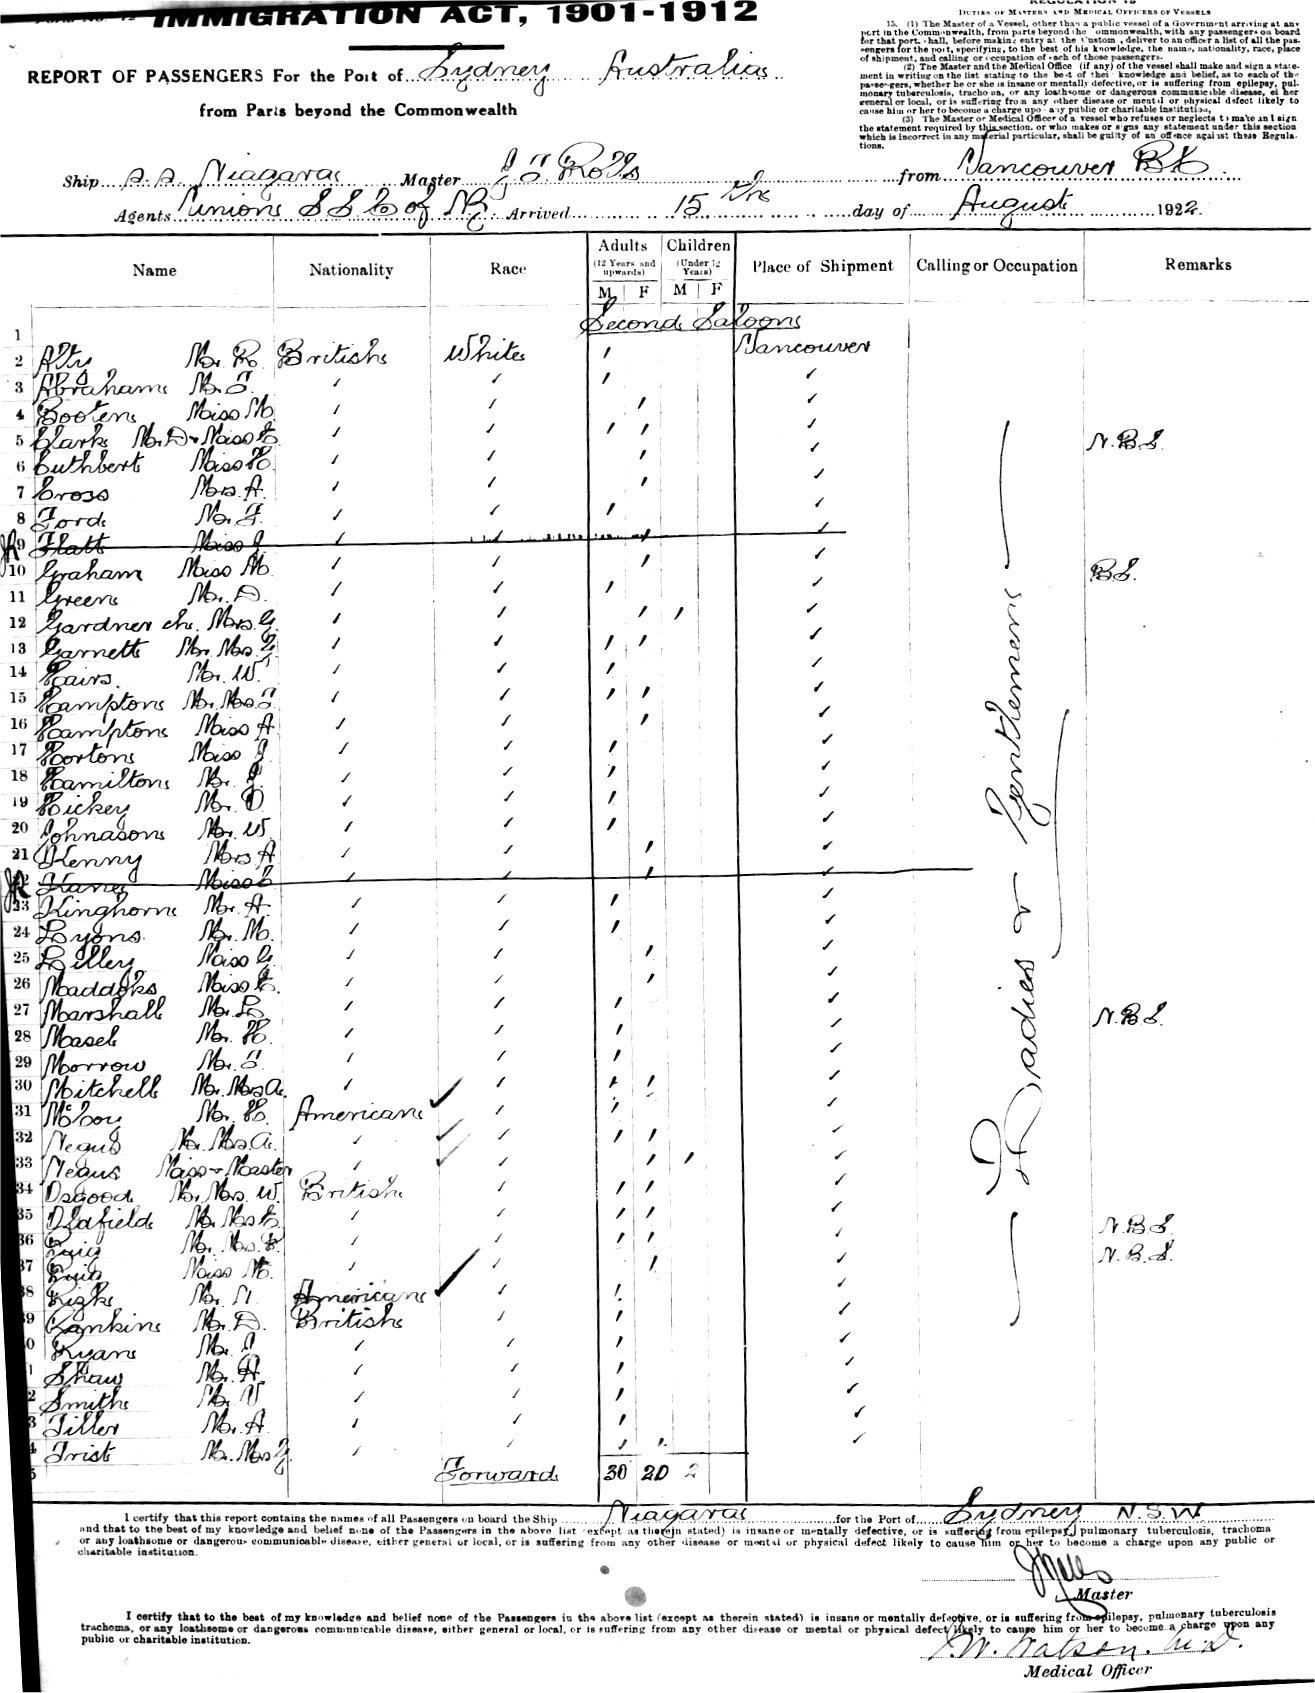 IMMIGRATION ACT, 1901-1912
REPORT OF PASSENGERS For the Port of Sydney Australia
from Parts beyond the Commonwealth
DUTIES OF MASTERS AND MEDICAL OFFICERS OF VESSELS
15. (1) The Master of a Vessel, other than a public vessel of a Government arriving at any
port in the Commonwealth, from parts beyond the Commonwealth, with any passengers on board
for that port, shall, before making entry at the Customs, deliver to an officer a list of all the pas-
sengers for the port, specifying, to the best of his knowledge, the name, nationality, race, place
of shipment, and calling or occupation of each of those passengers.
(2) The Master and the Medical Office (if any) of the vessel shall make and sign a state-
ment in writing on the list stating to the best of their knowledge and belief, as to each of the
passengers, whether he or she is insane or mentally defective, or is suffering from epilepsy, pul-
monary tuberculosis, trachoma, or any loathsome or dangerous communicable disease, either
general or local, or is suffering from any other disease or mental or physical defect likely to
cause him or her to become a charge upon any public or charitable institution.
(3) The Master or Medical Officer of a vessel who refuses or neglects to make and sign
the statement required by this section, or who makes or signs any statement under this section
which is incorrect in any material particular, shall be guilty of an offence against these Regula-
tions.
Ship s.s. Niagara Master from Vancouver BC
Agents Union S S Co of NZ Arrived 15 day of August 1922
Name Nationality Race Adults (12 Years and upwards) M F Children (Under 12 Years) M F Place of Shipment Calling or Occupation Remarks
1 Second Saloon
2 Mr. R British White Vancouver
3 Abraham Mr. T.
4 Booten Miss M.
5 Clark Mr. D & Miss E. N.B.S.
6 Cuthbert Miss H.
7 Cross Mrs. A.
8 Ford Mr. F.
9 Flatt Miss J.
10 Graham Miss M. BS.
11 Green Mr. D.
12 Gardner ch. Mrs. G.
13 Garnett Mr. Mrs.
14 Hairs. Mr. W.
15 Hampton Mr. Mrs. T
16 Hampton Miss A
17 Horton Miss J.
18 Hamilton Mr. J.
19 Hickey Mr. D
20 Johnason Mr. W.
21 Kenny Mrs A
Kane Miss
23 Kinghorn Mr. A.
24 Lyons. Mr. M.
25 Lilley Miss G.
26 Maddoks Miss E.
27 Marshall Mr. L N.B.S.
28 Masel Mr. H.
29 Morrow Mr. T.
30 Mitchell Mr. Mrs A.
31 McCoy Mr. H. American
32 Negus Mr. Mrs. A.
33 Negus Miss & Master
34 Osgood Mr. Mrs. W. British
35 Oldfield Mr. Mrs E. N.B.S.
36 Mr. Mrs. N.B.S.
37 Miss M.
38 Mr. American
39 Rankine Mr. D. British
0 Ryan Mr. J
1 Shaw Mr. H.
2 Smith Mr. V
3 Tiller Mr. A.
4 Trist Mr. Mrs
5 Forward 30 20 2
Ladies & Gentlemen
I certify that this report contains the names of all Passengers on board the Ship Niagara for the Port of Sydney N.S.W
and that to the best of my knowledge and belief none of the Passengers in the above list (except as therein stated) is insane or mentally defective, or is suffering from epilepsy, pulmonary tuberculosis, trachoma
or any loathsome or dangerous communicable disease, either general or local, or is suffering from any other disease or mental or physical defect likely to cause him or her to become a charge upon any public or
charitable institution.
Master
I certify that to the best of my knowledge and belief none of the Passengers in the above list (except as therein stated) is insane or mentally defective, or is suffering from epilepsy, pulmonary tuberculosis
trachoma, or any loathsome or dangerous communicable disease, either general or local, or is suffering from any other disease or mental or physical defect likely to cause him or her to become a charge upon any
public or charitable institution.
W. Watson. M.D.
Medical Officer